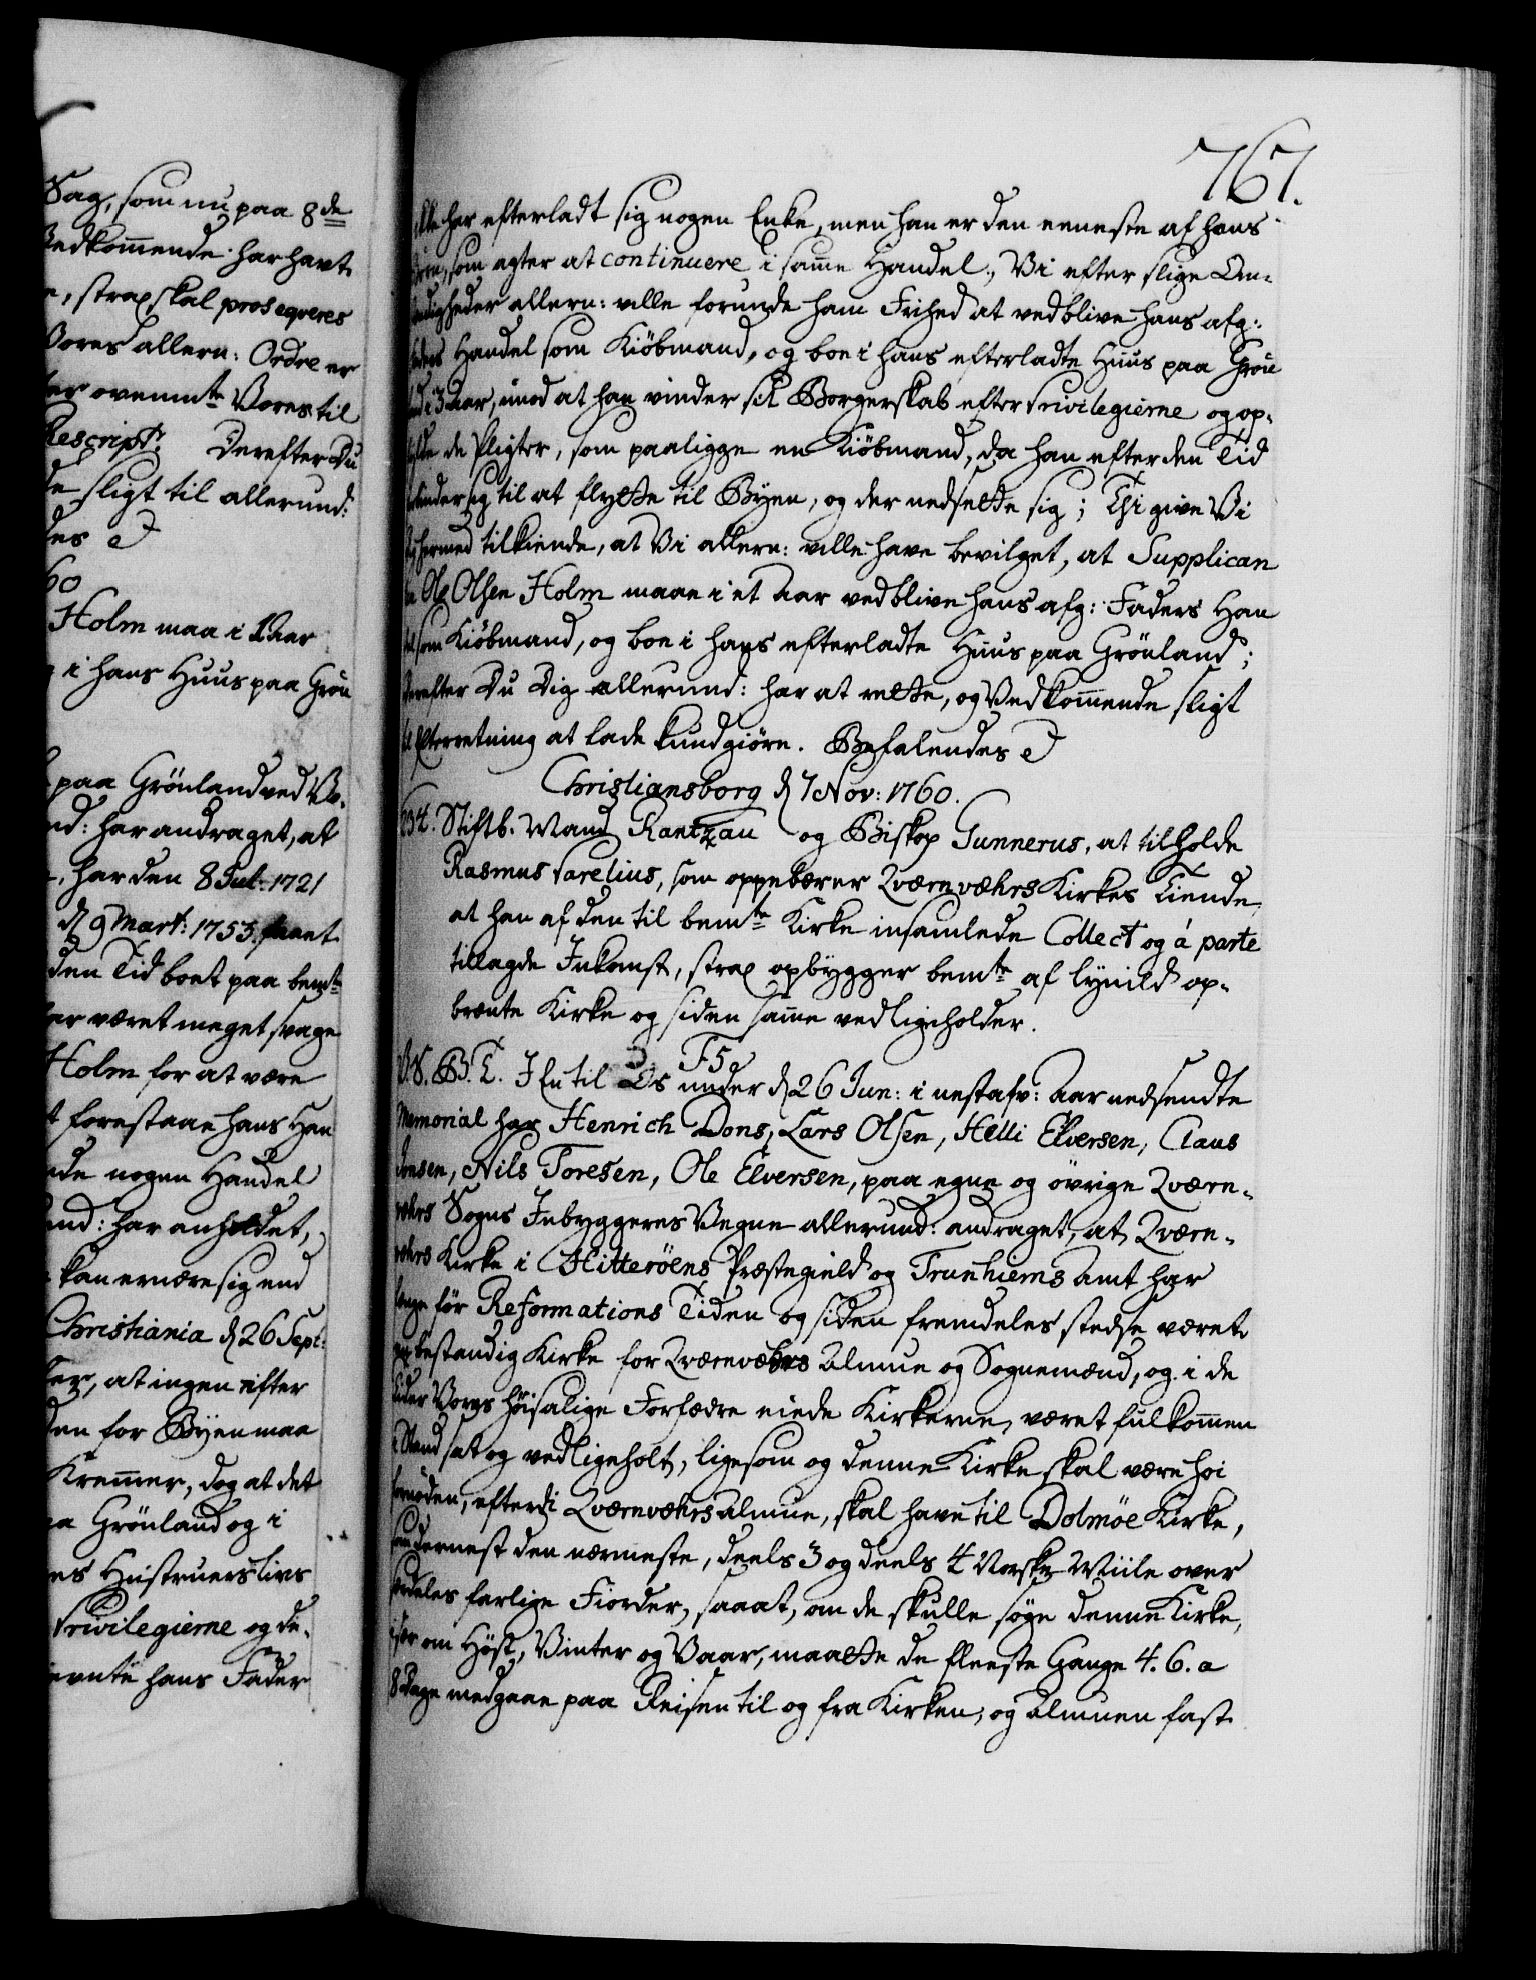 Sag, som nu paa 8de
Vedkom̄ende har havt
strax skal proseqveres
Vores allern: Ordre er
ovenmte Vores til
Rescript. Derefter Du
sligt til allerund:
60
Holm maa i 1 Aar
i hans Huus paa Grön
paa Grönland ved
nd: har andraget, at
har den 8 Jul: 1721
d 9 Mart: 1753.
den Tid boet paa bemte
været meget svage
Holm for at være
forestaae hans Han
nde nogen Handel
und: har anholdet,
kan ernære sig end
Christiania d 26 Sept:
at ingen efter
den for Byen maa
Krem̄er, dog at det
Grönland og i
Hustruers livs
Privilegierne og de,
hans Fader
767.
har efterladt sig nogen Enke, men han er den eeneste af hans
som agter at continuere i sam̄e Handel, Vi efter slige Om-
stendigheder allern: ville forunde ham Frihed at vedblive hans afg:
Faders Handel som Kiöbmand, og boe i hans efterladte Huus paa Grön
land i 3 Aar, imod at han vinder sit Borgerskab efter Privilegierne og op-
fylde de Pligter, som paaligge en Kiöbmand, da han efter den Tid
sig til at flytte til Byen, og der nedsette sig; Thi give Vi
hermed tilkiende, at Vi allern: ville have bevilget, at Supplican
ten Ole Olsen Holm maae i et Aar vedblive hans afg: Faders Han
del som Kiöbmand, og boe i hans efterladte Huus paa Grönland;
derefter Du Dig allerund: har at rette, og Vedkom̄ende sligt
til Efterretning at lade kundgiöre. Befalendes
Christiansborg d 7 Nov: 1760.
234. Stiftb. Mand Rantzau og Biskop Gunnerus, at tilholde
Rasmus Parelius, som oppebærer Qværnvæhrs Kirkes Tiende,
at han af den til bemte Kirke insamlede Collect og á parte
tillagde Inkomst, strax opbygger bemte af lynild op-
brænte Kirke og siden sam̄e vedligeholder.
F5.
Os under d 26 Jun: i nestafv: Aar nedsendte
Memorial har Henrich Dons, Lars Olsen, Helli Elversen, Claus
Nils Toresen, Ole Elversen, paa egne og övrige Qværn-
væhrs Sogns Indbyggeres Vegne allerund: andraget, at Qværn-
væhrs Kirke i Hitteröens Præstegield og Trunhiems Amt har
lenge för Reformations Tiden og siden fremdeles stedse været
bestandig Kirke for Qværnvæhrs Almue og Sognemænd, og i de
Tider Vores höisalige Forfædre eiede Kirkerne, været fulkom̄en
i Stand sat og vedligeholt, ligesom og denne Kirke skal være höi
fornöden, efterdi Qværnvæhrs Almue, skal have til Dolmöe Kirke,
som dernest den nærmeste, deels 3 og deels 4 Norske Miile over
farlige Fiorder, saaat, om de skulle söge denne Kirke,
især om Höst, Vinter og Vaar, maatte de fleeste Gange 4. 6. a
8 Dage medgaae paa Reisen til og fra Kirken, og Almuen fast